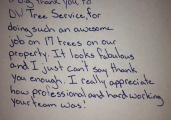 thank you to
DW Tree Service, for
doing such an awesome
job on 17 trees on our
property. It looks fabulous
and I just can't say thank
you enough. I really appreciate
how professional and hard working
your team was!